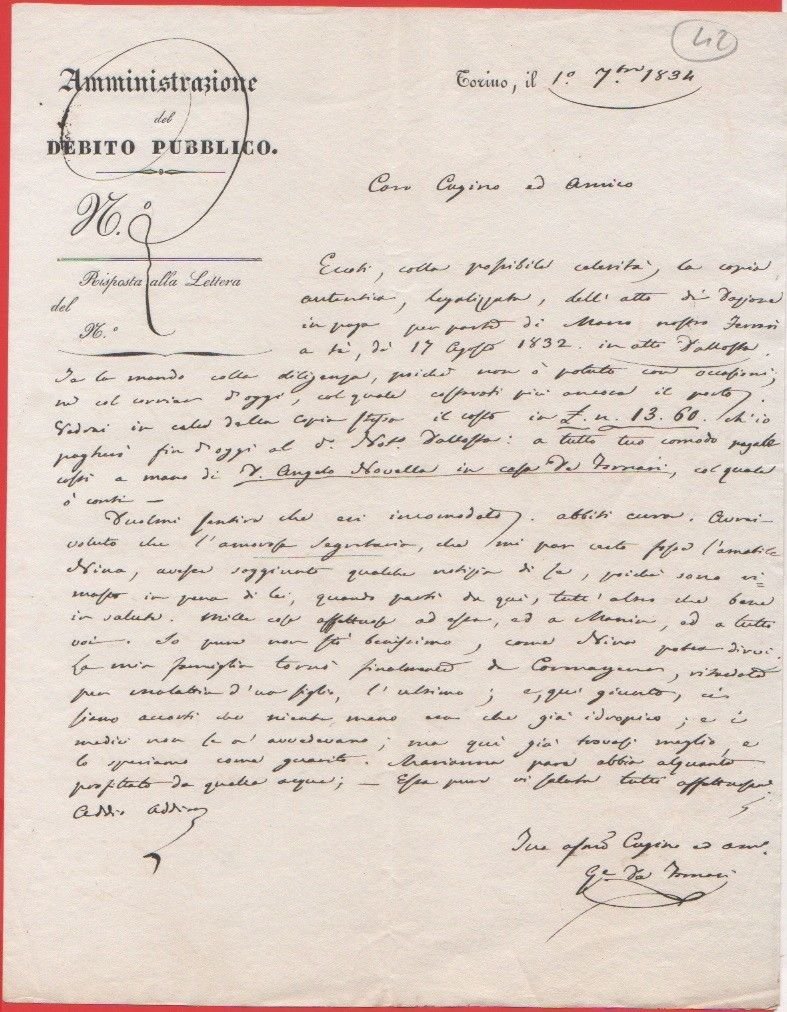 42
Amministrazione
del
DEBITO PUBBLICO.
N.o
Risposta alla Lettera
del
N.o
Torino, il 1o 7bre 1834
Caro Cugino ed Amico
Eccoti, colla possibile celerità, la copia
autentica, legalizzata, dell'atto di Dazione
in paga per parte di Marco nostro Ferrari
a te, di 17 Agosto 1832. in atti Dallosta.
Te la mando colla diligenza, poiché non ò potuto con occasioni,
né col corriere d'oggi, col quale costavati più ancora il porto.
Vedrai in calce della Copia stessa il costo in £. n. 13. 60. ch'io
pagherò fin d'oggi al Sr. Not. Dallosta: a tutto tuo comodo pagale
costì a mano di D. Angelo Novella in casa De Fornari, col quale
ò conti —
Duolmi sentire che sei incomodato. abbiti cura. Avrei
voluto che l'amorosa Segretaria, che mi par certo fosse l'amabile
Nina, avesse soggiunto qualche notizia di se, poiché sono ri=
masto in pena di lei, quando partì da qui, tutt'altro che bene
in salute. Mille cose affettuose ad essa, ed a Maria, ed a tutti
voi. Io pure non stò benissimo, come Nina potea dirvi.
La mia famiglia tornò finalmente da, ritardata
per malattia d'un figlio, l'ultimo; e, qui giunto, ci
siamo accorti che niente meno era che già idropico; e i
medici non se n'avvedevano; ma qui già trovasi meglio, e
lo speriamo come guarito. Marianna pare abbia alquanto
profittato da quelle acque; — Essa pure vi saluta tutti affettuosa
Addio Addio
Tuo affmo Cugino ed am.
De Fornari